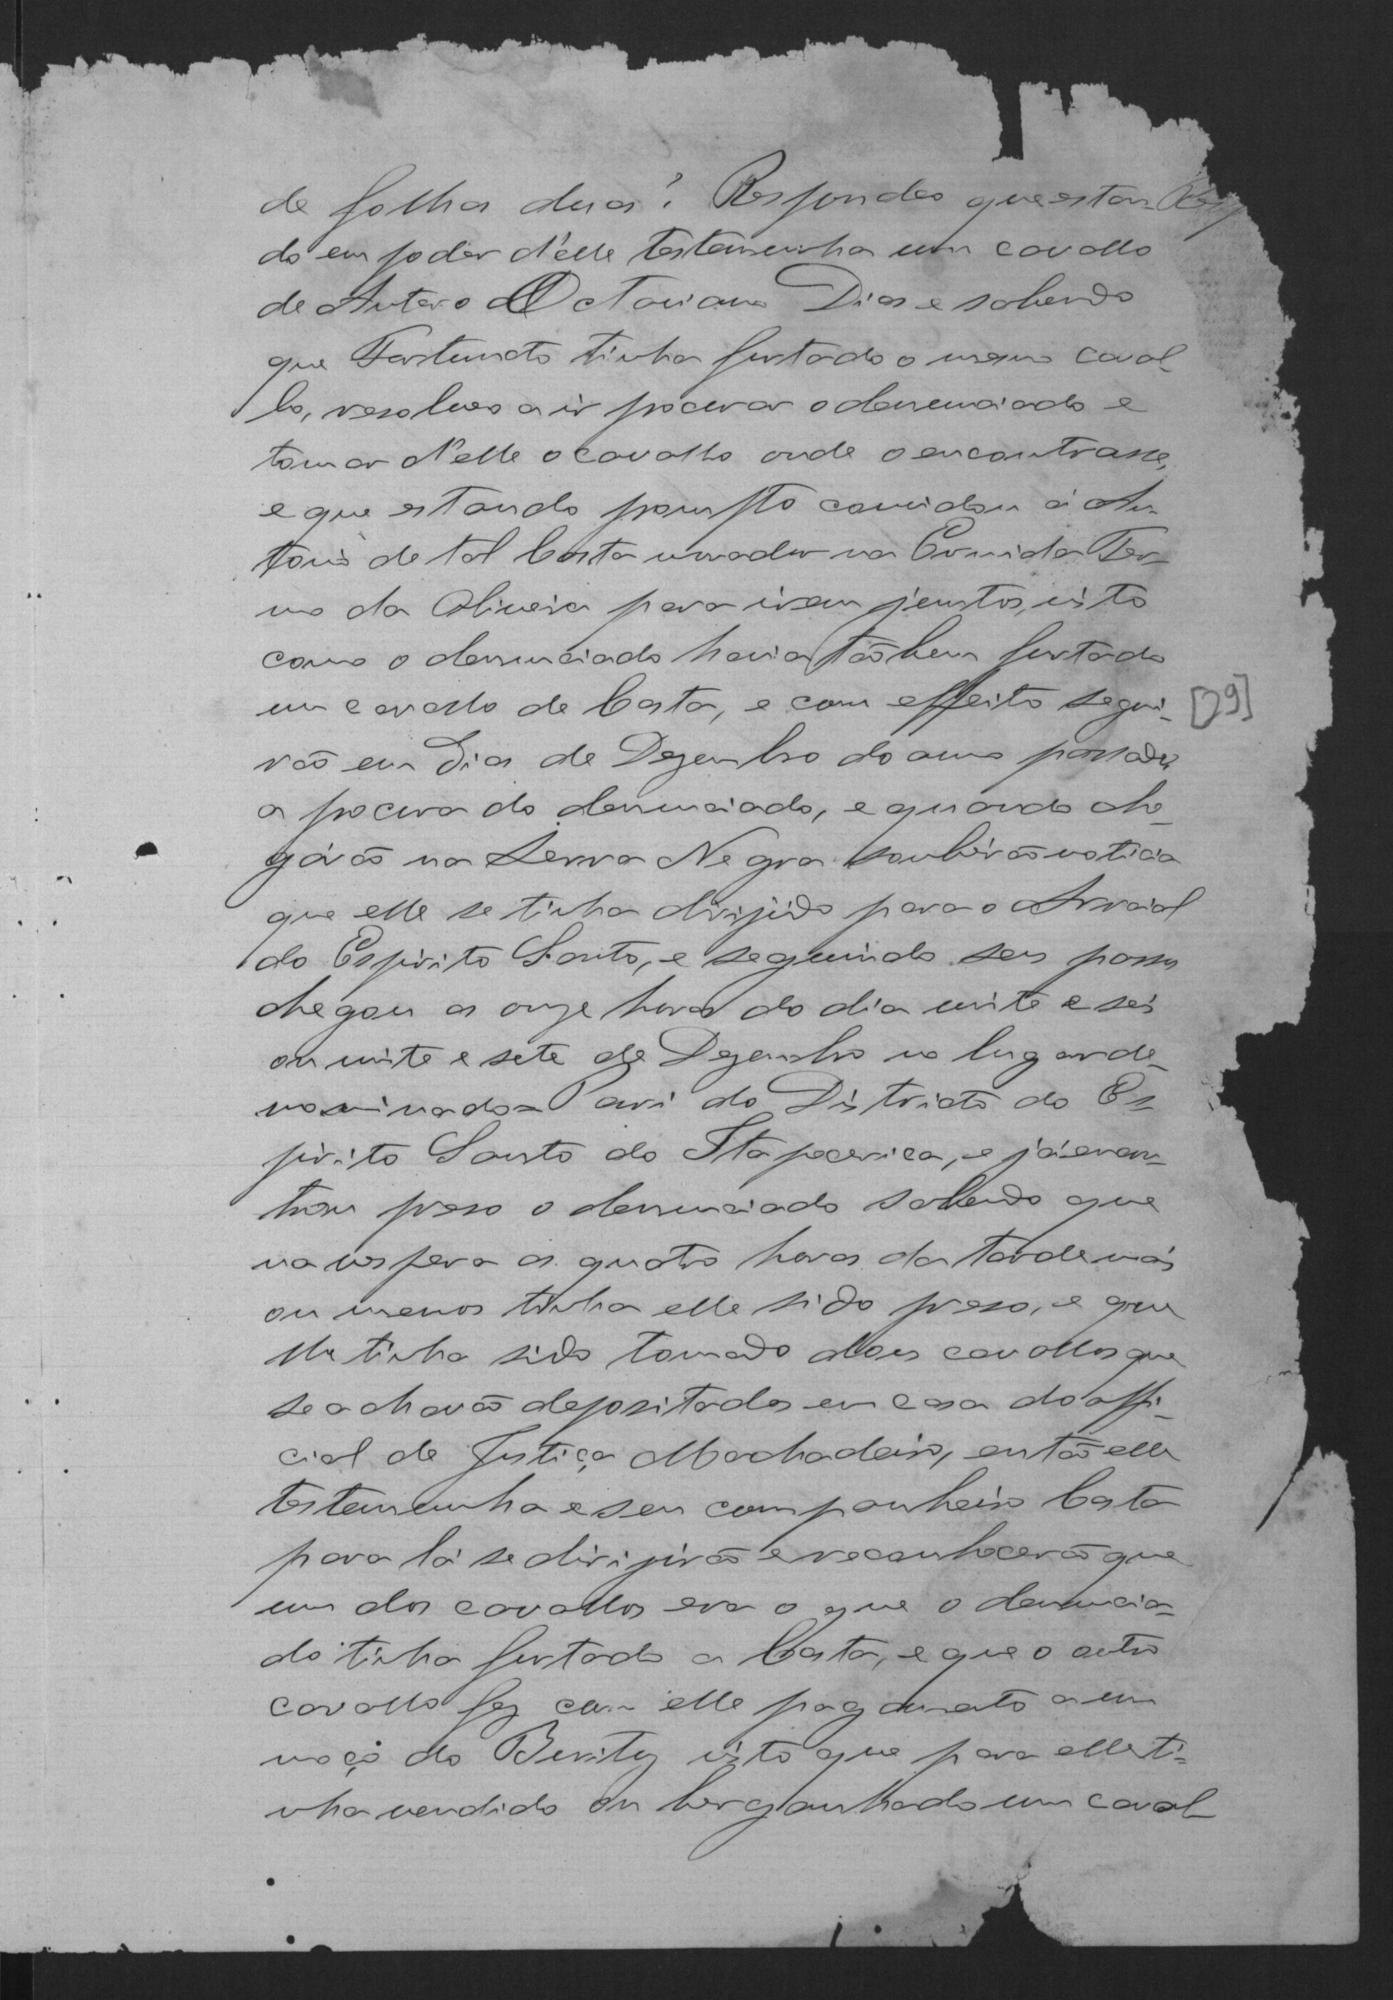 de folha duas? Respondeo que estan-
do em poder d'elle testemunha um cavallo
de Antero Octaviano Dias e sabendo
que Fortunato tinha furtado o mesmo caval-
lo, resolveo a ir procurar o denunciado e
tomar d'elle o cavallo onde o encontrasse,
e que estando prompto convidou á An-
tonio de tal Costa morador na Ermida Ter-
mo da Oliveira para irem juntos, visto
como o denunciado havia tãobem furtado
um cavallo de Costa, e com effeito segui-
rão em dias de Dezembro do anno passado
a procura do denunciado, e quando che-
gárão na Serra Negra souberão noticia
que elle se tinha dirijido para o Arraial
do Espirito Santo, e seguindo seus passos
chegou as onze horas do dia vinte e seis
ou vinte e sete de Dezembro no lugar de-
nominado = Pari do Districto do Es-
pirito Santo do Itapecerica, e já encon-
trou preso o denunciado sabendo que
na vespera as quatro horas da tarde mais
ou menos tinha elle sido preso, e que
lhe tinha sido tomado dous cavallos que
se achavão depositados em casa do offi-
cial de Justiça Machadeiro, então elle
testemunha e seu companheiro Costa
para lá se dirijirão e reconhecerão que
um dos cavallos era o que o denuncia-
do tinha furtado a Costa, e que o outro
cavallo fez com elle pagamento a um
moço do Buritys visto que para elle ti-
nha vendido ou berganhado um caval-
[29]